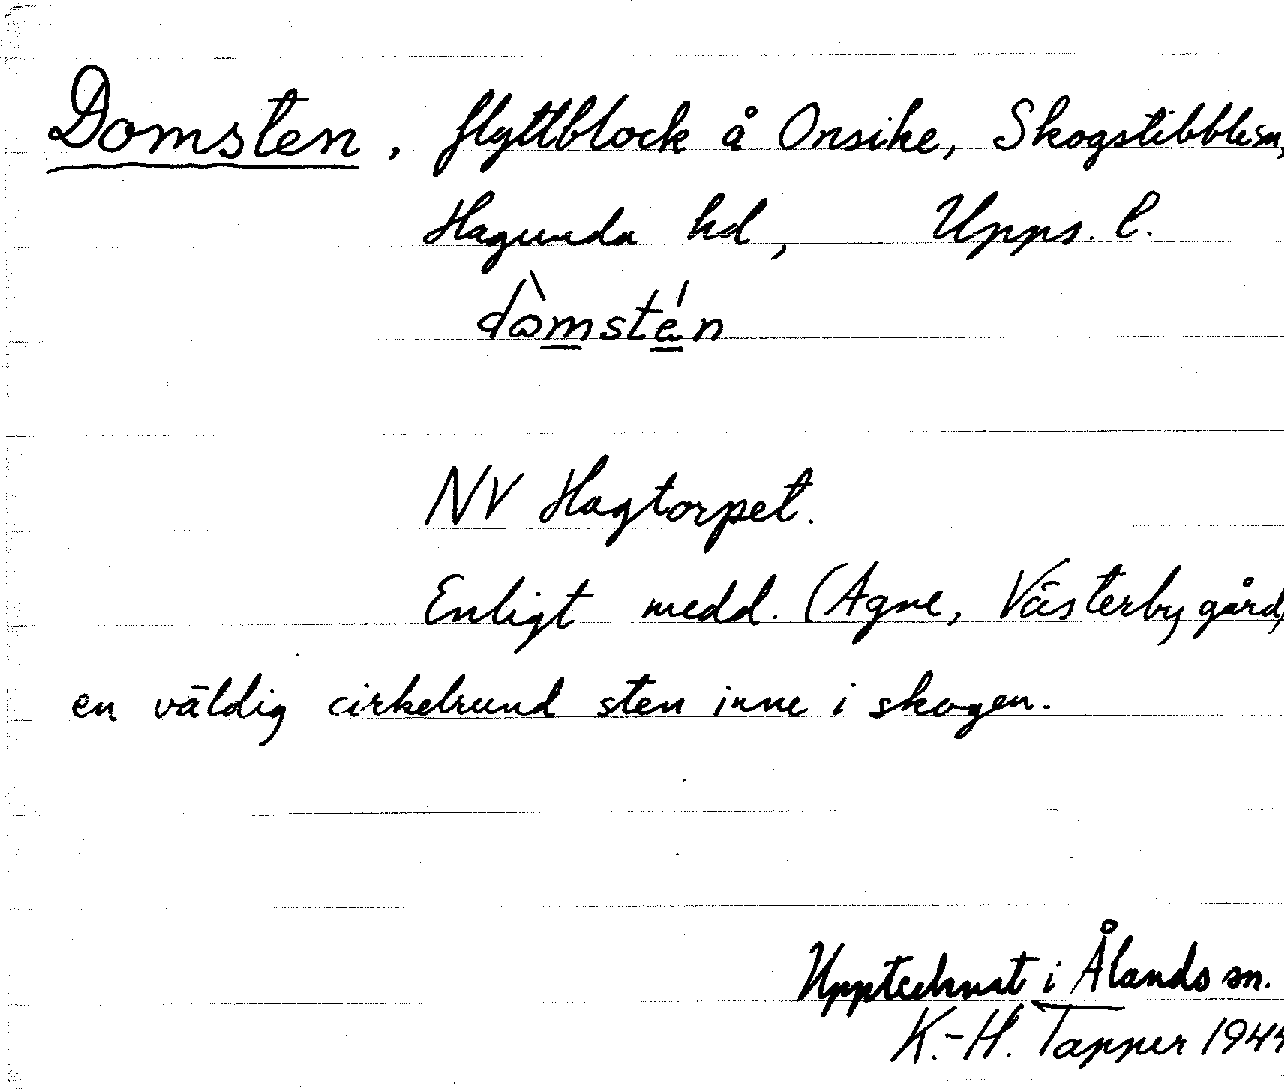 Domsten, flyttblock å Onsike, Skogstibble sn,
Hagunda hd, Upps. l.
dòmstén
NV Hagtorpet.
Enligt medd. (Agne, Västerby gård)
en väldig cirkelrund sten inne i skogen.
Upptecknat i Ålands sn.
K.-H. Tapper 1944